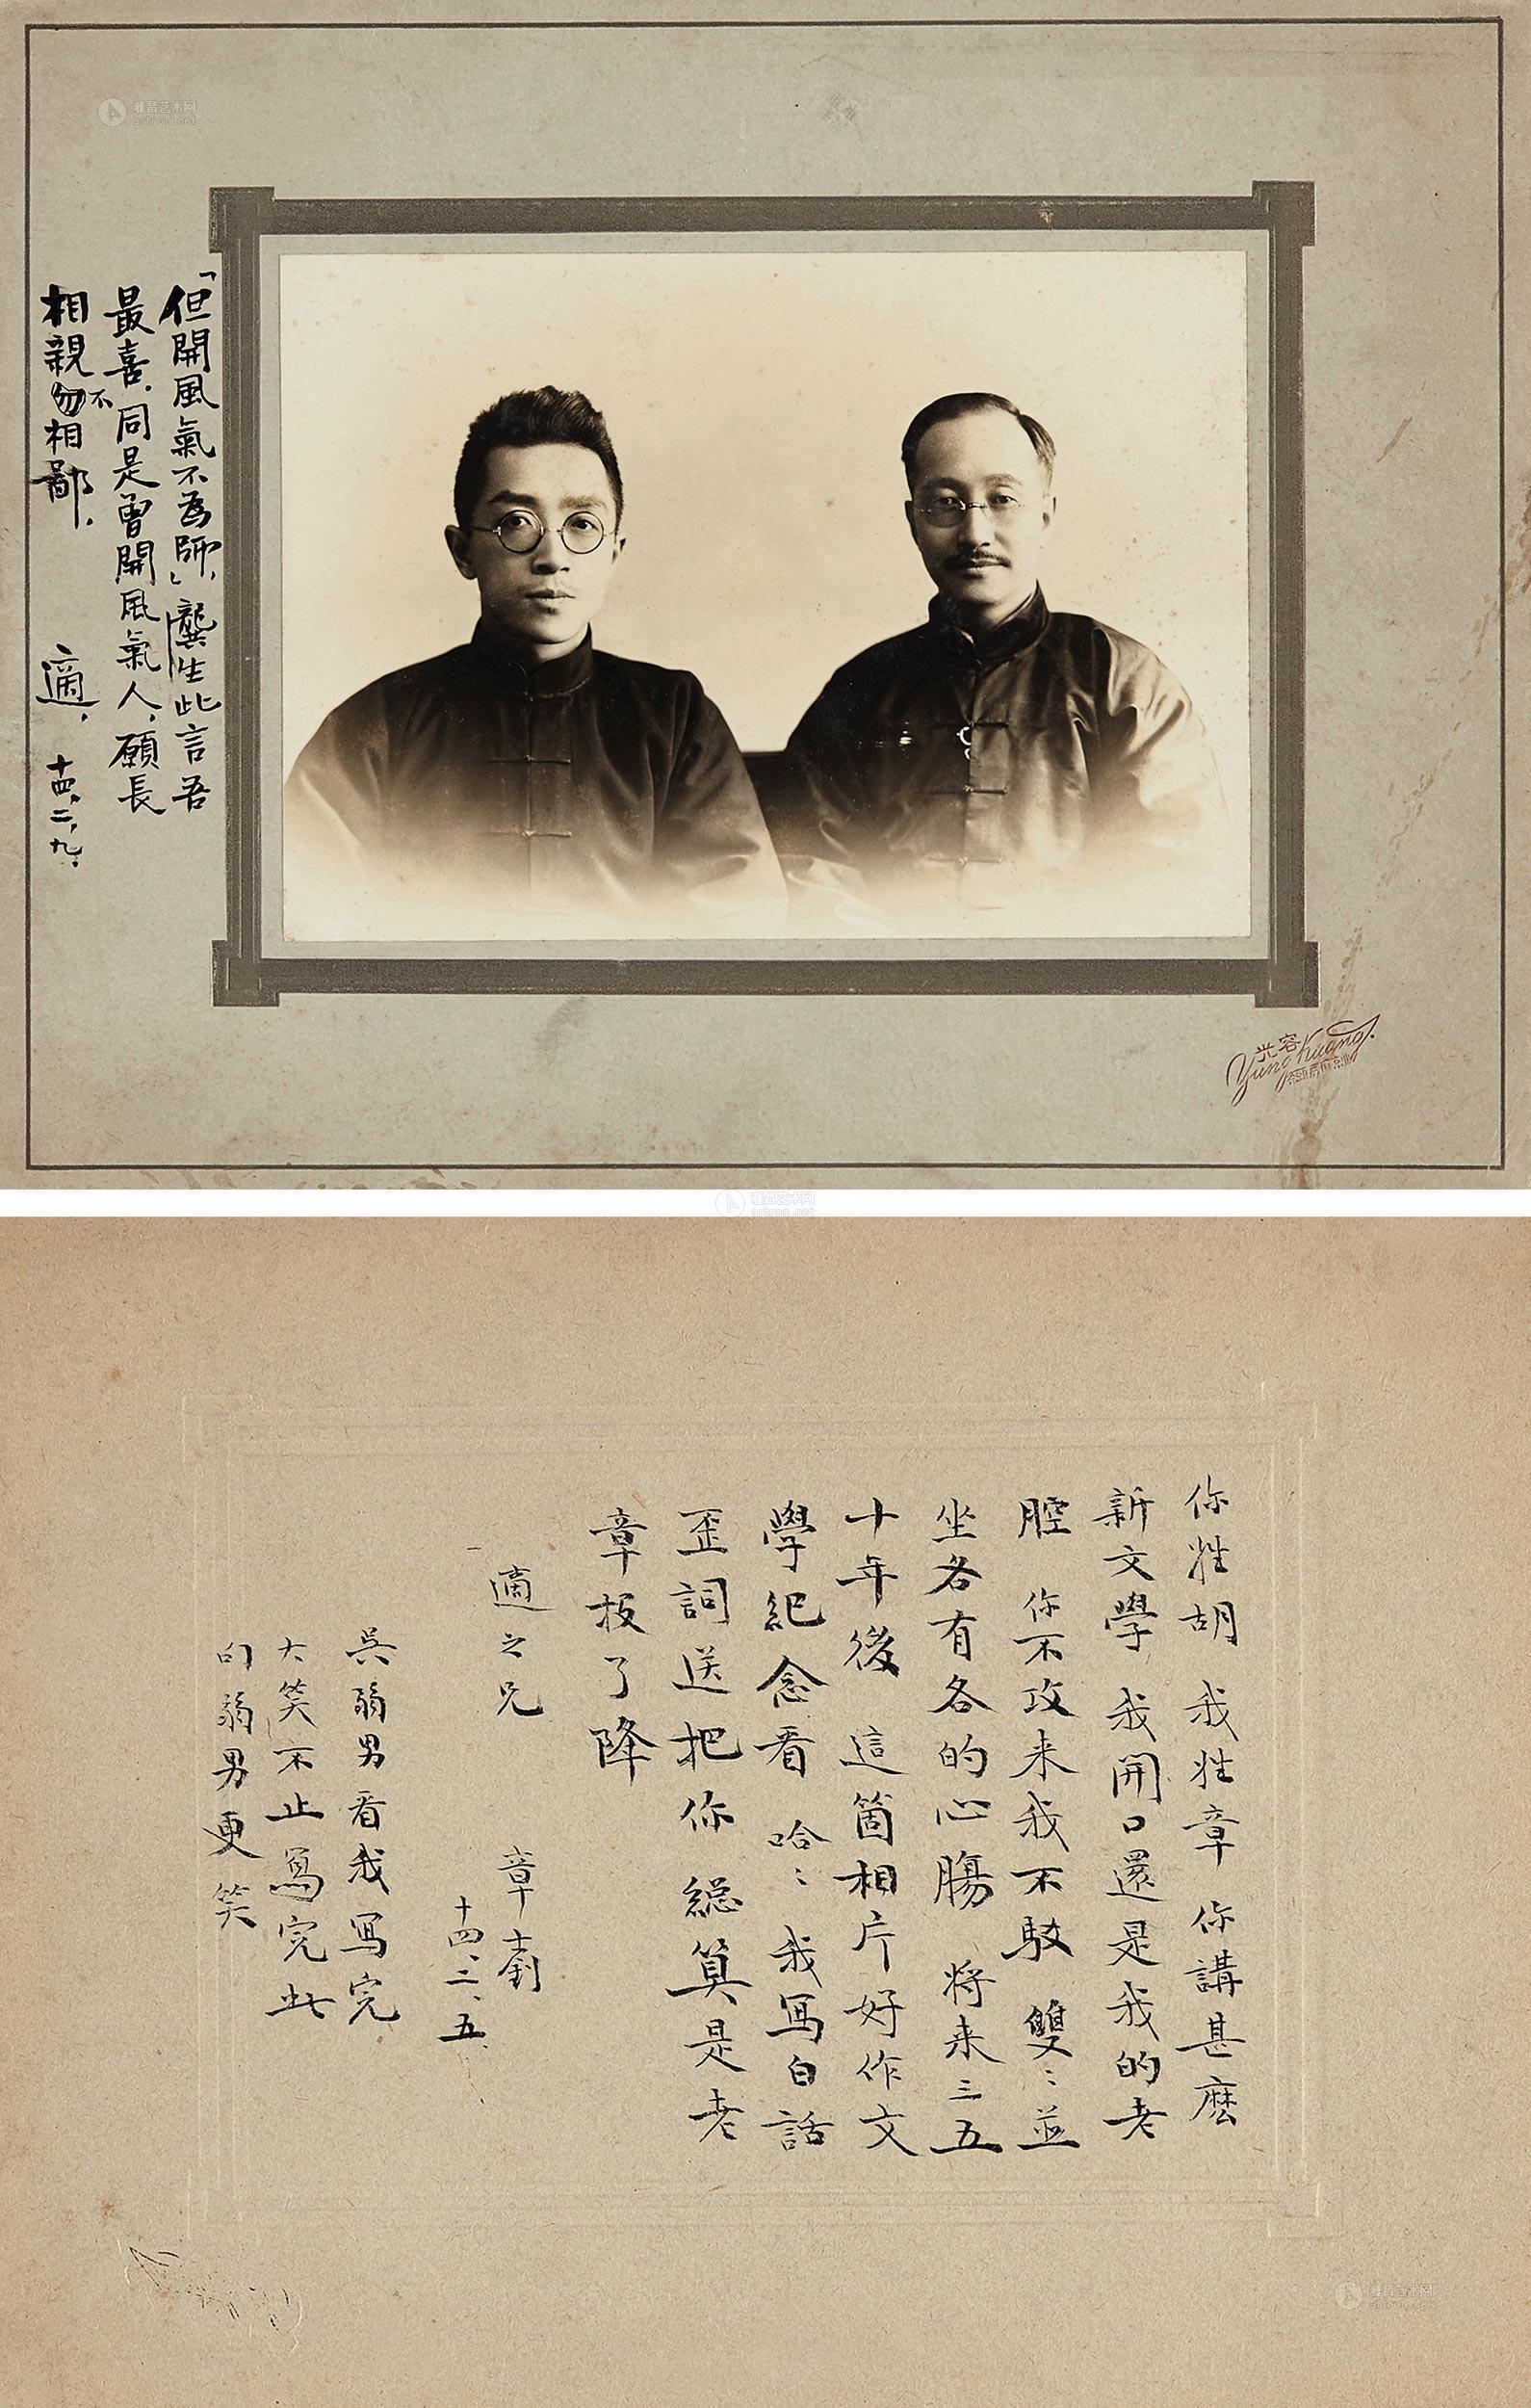 雅昌艺术网
「但開風氣不為師」，龔生此言吾
最喜．同是曾開風氣人，願長
相親不相鄙．
適． 十四，二，九．
容光
Yung Kuang
雅昌艺术网
artron.net
你姓胡 我姓章 你講甚麽
新文學 我開口還是我的老
腔 你不攻来我不駁 雙〻並
坐各有各的心腸 将来三五
十年後 這箇相片好作文
學紀念看 哈〻 我寫白話
歪詞送把你 總算是老
章投了降
適之兄 章士釗
十四、二、五、
吳弱男看我寫完
大笑不止寫完此
句弱男更笑